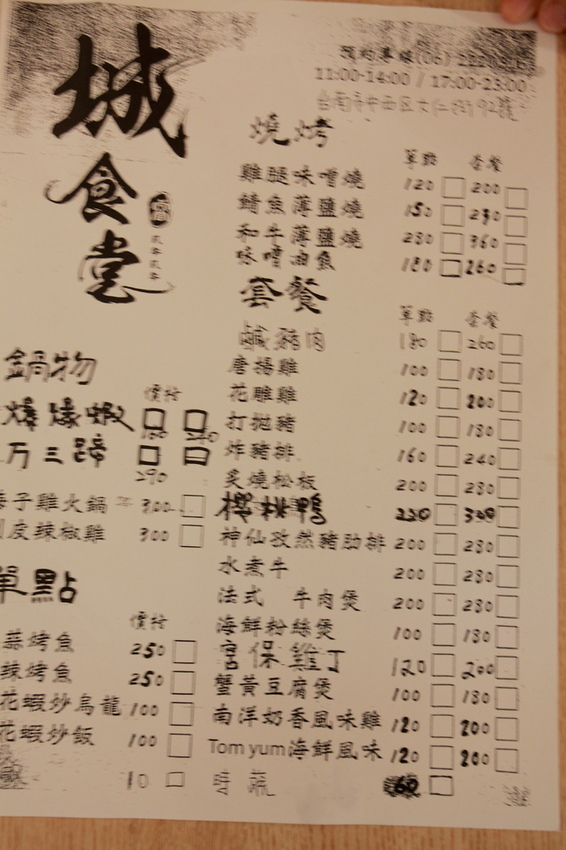 城食堂
預約專線(06)222
11:00-14:00 / 17:00-23:00
台南市中西区
燒烤
單點 套餐
雞腿味噌燒 120 200
鯖魚薄鹽燒 150 230
和牛薄鹽燒 280 360
味噌油魚 180 260
套餐
單點 套餐
鹹豬肉 180 260
唐揚雞 100 180
花雕雞 120 200
打拋豬 100 180
炸豬排 160 240
炙燒松板 200 280
櫻桃鴨
神仙孜然豬肋排 200 280
水煮牛 200 280
法式 牛肉煲 200 280
海鮮粉絲煲 100 180
宮保雞丁 120 200
蟹黃豆腐煲 100 180
南洋奶香風味雞 120 200
Tom yum海鮮風味 120 200
時蔬 60
鍋物
價格
爆爆蝦
万三蹄
290
子雞火鍋 300
皮辣椒雞 300
單點
價格
蒜烤魚 250
辣烤魚 250
花蝦炒烏龍 100
花蝦炒飯 100
10